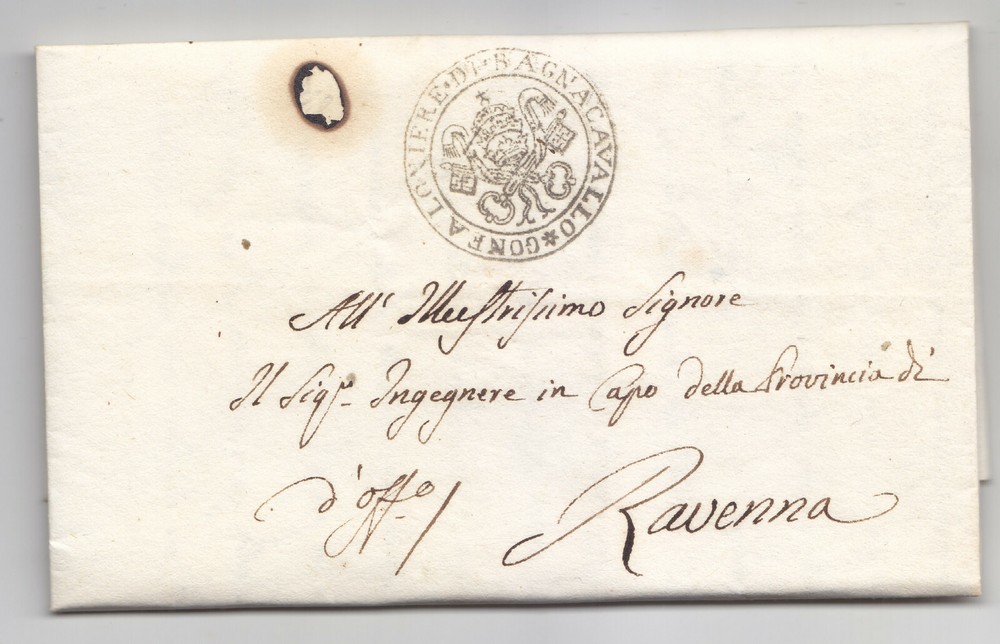 GONFALONIERE·DI·BAGNACAVALLO
All' Illustrissimo Signore
Il Sigr. Ingegnere in Capo della Provincia di
d'Off.o Ravenna